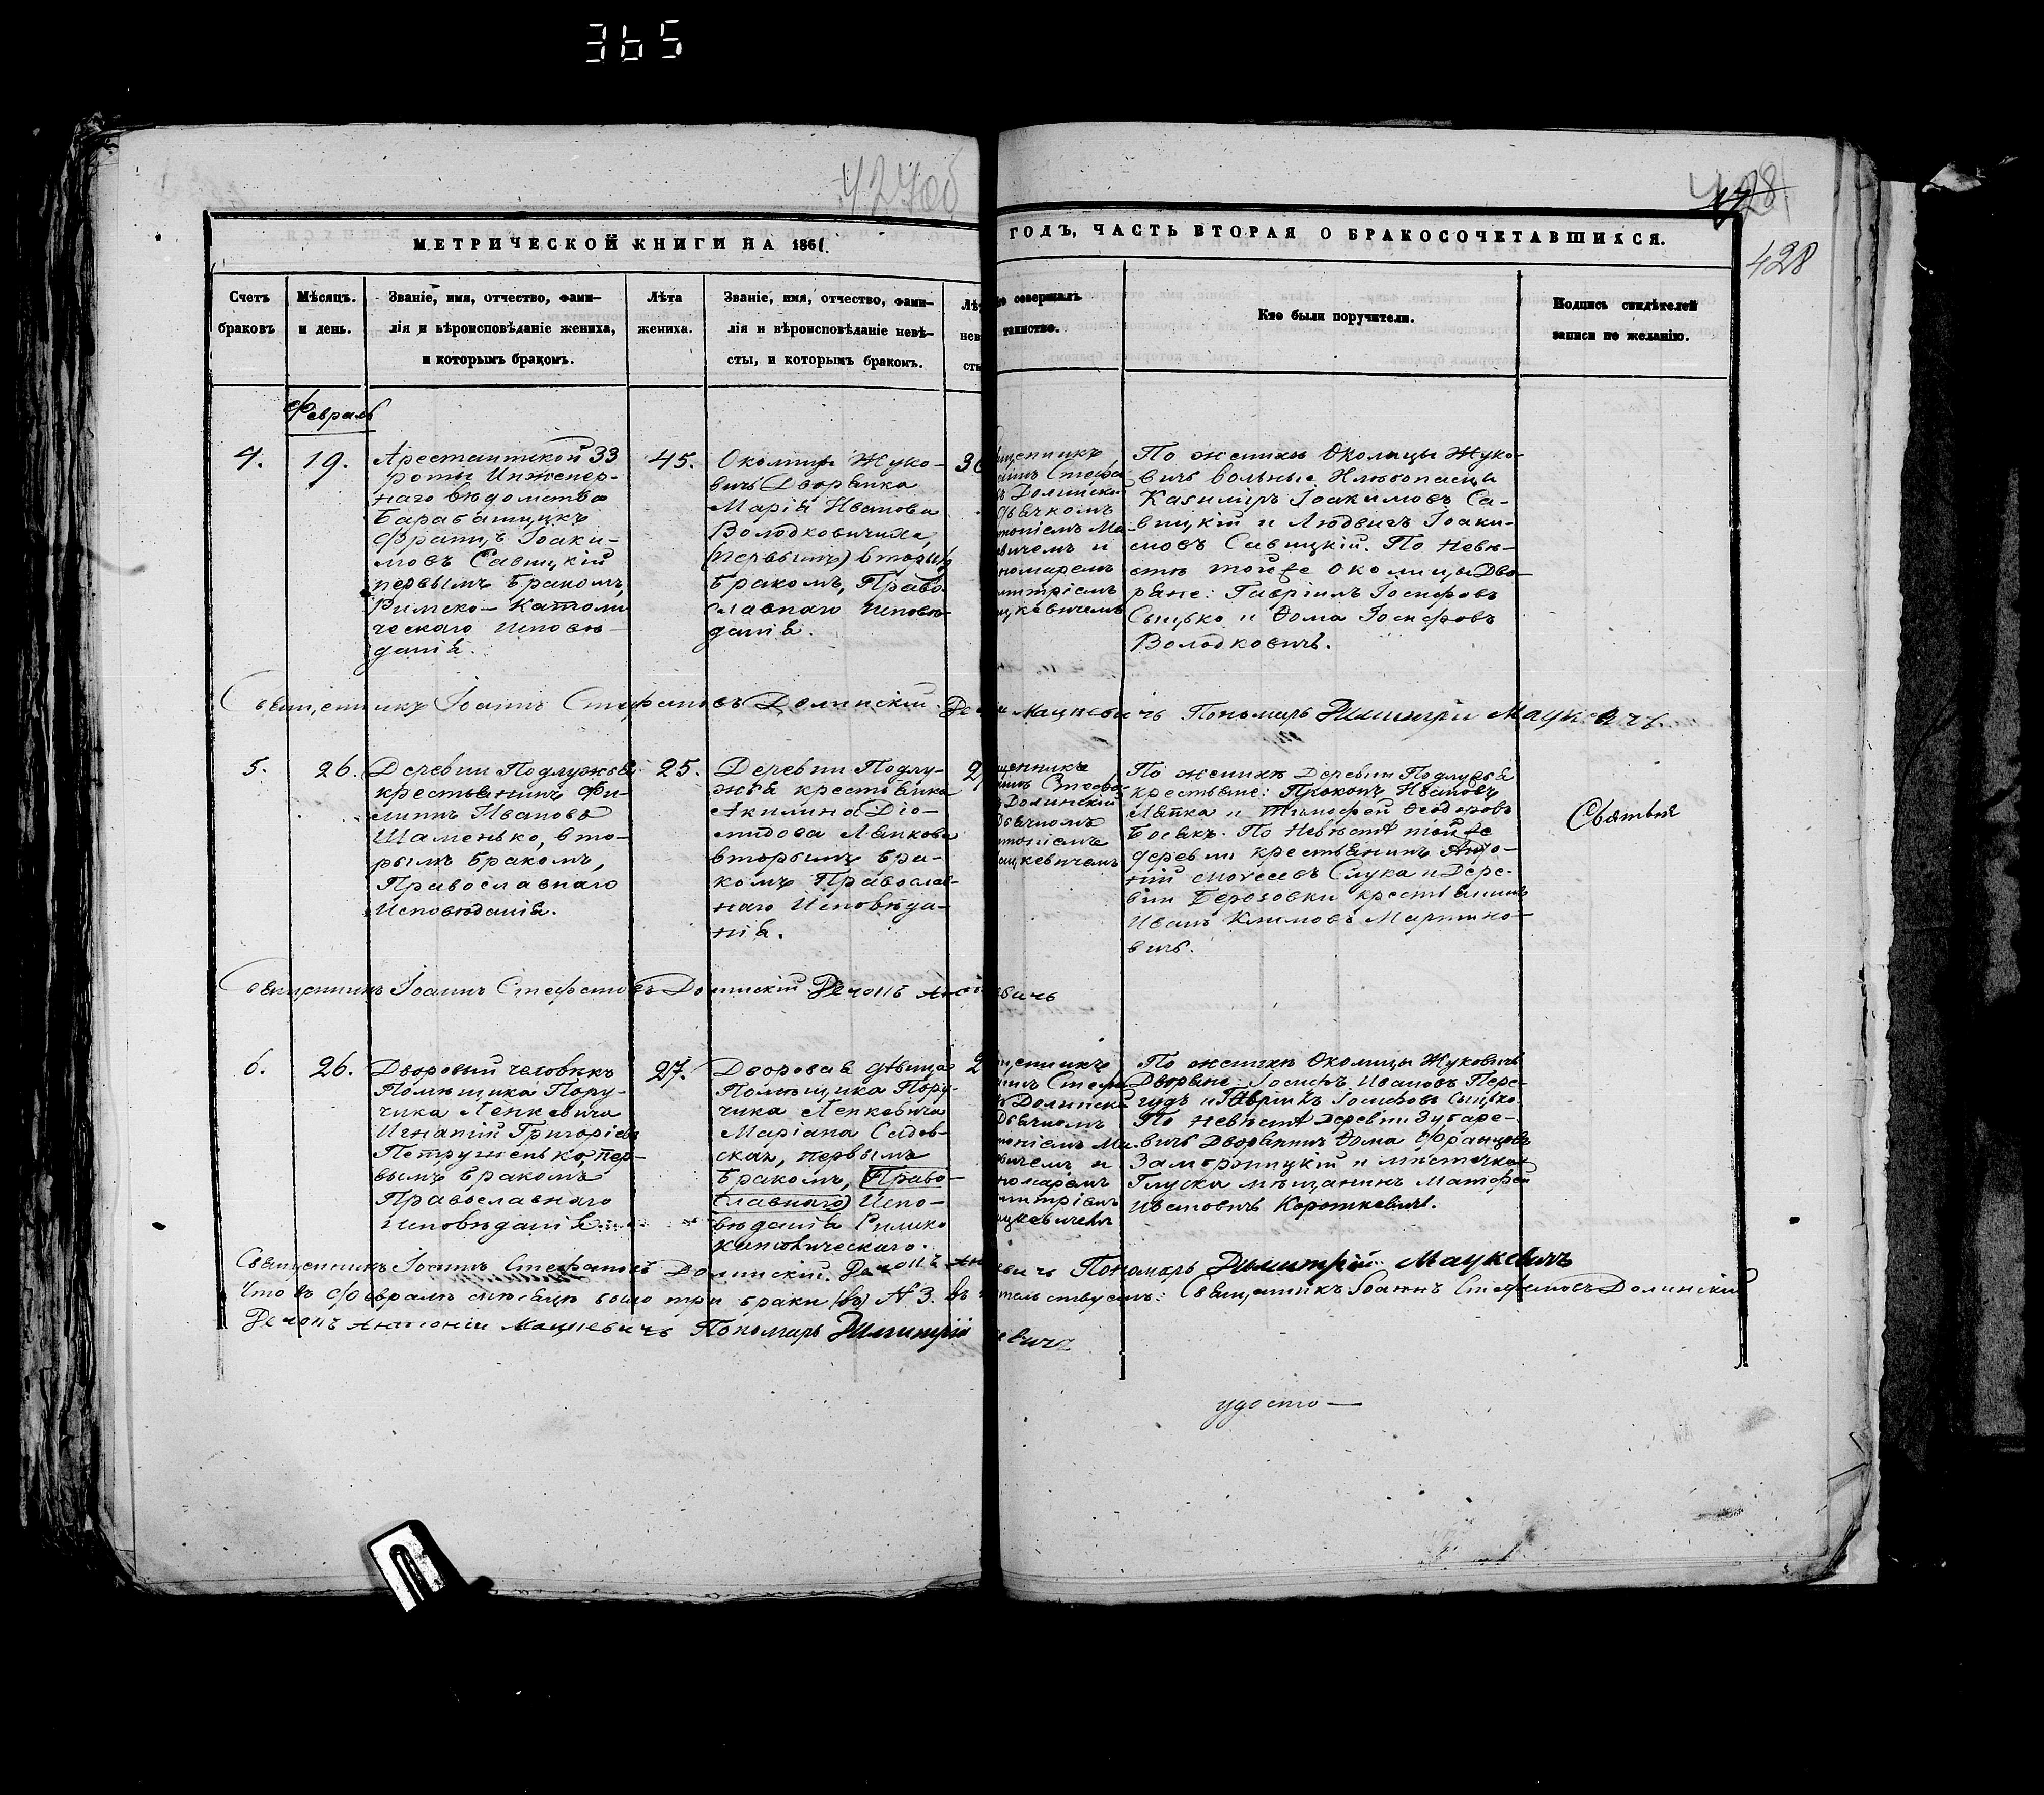 365
427об
428
428
МЕТРИЧЕСКОЙ КНИГИ НА 1861.
ГОДЪ, ЧАСТЬ ВТОРАЯ О БРАКОСОЧЕТАВШИХСЯ.
Счетъ
браковъ
Мѣсяцъ.
и день.
Званіе, имя, отчество, фами-
лія и вѣроисповѣданіе жениха,
и которымъ бракомъ.
Лѣта
жениха.
Званіе, имя, отчество, фами-
лія и вѣроисповѣданіе невѣ-
сты, и которымъ бракомъ.
Лѣ
нев
сты
совершалъ
таинство.
Кто были поручители.
Подпись свидѣтелей
записи по желанію.
Февраль
4.
19.
Арестантской 33
роты Инженер-
наго вѣдомства
Францъ Іоаки-
мовъ Савицкій
первымъ бракомъ,
Римско-Католи
ческаго Исповѣ-
данія.
45.
Околицы Жуко-
вичь Дворянка
Марія Иванова
Володковичиха,
(первымъ) вторымъ
бракомъ, Право
славнаго Исповѣ-
данія.
30
щенникъ
Стефа
Долинскій
Дьячкомъ
тоніемъ Ма
вичемъ и
номаремъ
митріемъ
цкевичемъ
По женихѣ Околицы Жуко-
вичь вольные Хлѣбопашцы
Казиміръ Іоакимовъ Са-
вицкій и Людвигъ Іоаки-
мовъ Савицкій. По Невѣ-
стѣ тойже околицы Дво-
ряне: Гавріилъ Іосифовъ
Сыцько и Ѳома Іосифовъ
Володковичь.
Священникъ Іоаннъ Стефановъ Долинскій Мацкевичь Пономарь Димитрій Мацкевичь
5.
26.
Деревни Подлужья
крестьянинъ Фи-
липпъ Ивановъ
Шаменько, вто-
рымъ бракомъ,
Православнаго
Исповѣданія.
25.
Деревни Подлу-
жья крестьянка
Акилина Діо-
мидова Лапкова
вторымъ бра-
комъ Православ-
наго Исповѣда-
нія.
2
щенникъ
Стефа
Долинскій
Дьячкомъ
тоніемъ
ацкевичемъ
По женихѣ Деревни Подлужья
крестьяне: Прокопъ Ивановъ
Лапка и Тимофей Ѳеодоровъ
По Невѣстѣ тойже
деревни крестьянинъ Анто-
ній Моѵсеевъ Слука и Дере-
вни Березовки крестьянинъ
Иванъ Климовъ Мартино-
вичь.
Священникъ Іоаннъ Стефановъ Долинскій
6.
26.
Дворовый человѣкъ
Помѣщика Пору-
чика Ленкевича
Игнатій Григорьевъ
Петрушенько, пер-
вымъ бракомъ
Православнаго
Исповѣданія.
27.
Дворовая дѣвица
Помѣщика Пору-
чика Ленкевича
Маріана Садов-
ская, первымъ
бракомъ, (Право-
славнаго) Испо-
вѣданія Римско
католическаго.
2
щенникъ
Стефа
Долинскі
Дьячкомъ
тоніемъ Ма
вичемъ и
номаремъ
митріемъ
цкевичемъ
По женихѣ Околицы Жуковичь
Дворяне: Іосифъ Ивановъ Пере-
гудъ и Гавріилъ Іосифовъ Сыцько.
По невѣстѣ Деревни Зубаре-
вичь Дворянинъ Ѳома Францовъ
Заморжицкій и мѣстечка
Глуска мѣщанинъ Матфей
Ивановичь Короткевичь.
Священникъ Іоаннъ Стефановъ Долинскій Пономарь Димитрій Мацкевичь
Что въ Февралѣ мѣсяцѣ было три брака (въ) № 3. въ тельствуемъ: Священникъ Іоаннъ Стефановъ Долинскій
Антоній Мацкевичь Пономарь Димитрій
евичь
удосто-